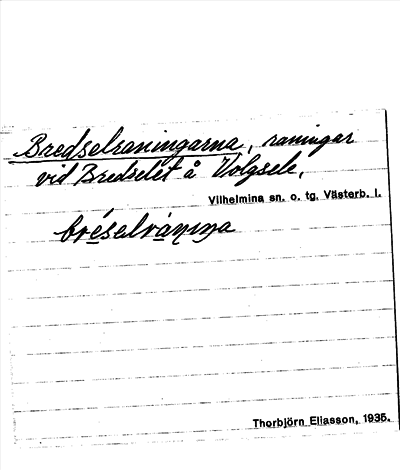 Bredselraningarna, raningar
vid Bredselet å Volgsele,
Vilhelmina sn. o. tg. Västerb. l.
bréselrániṇa
Thorbjörn Eliasson, 1935.